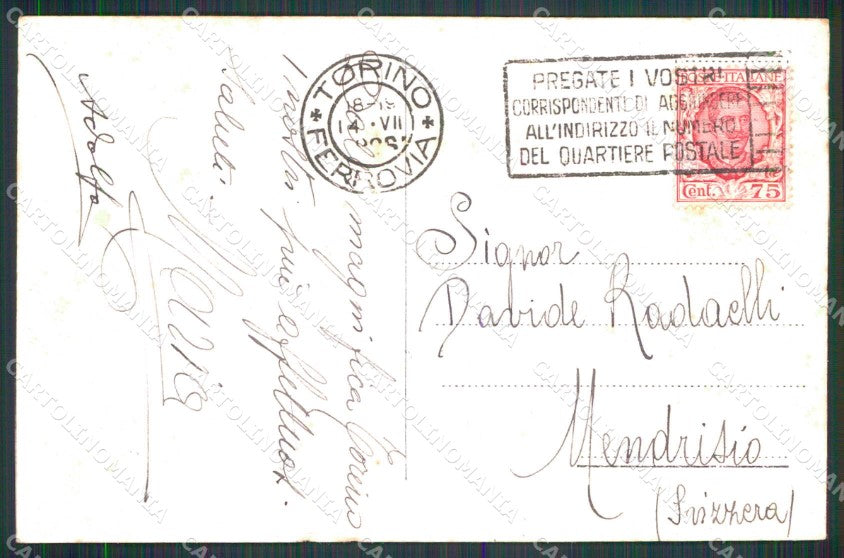 TORINO
18-19
14 VII
FERROVIA
PREGATE I VOSTRI
CORRISPONDENTI DI AGGIUNGERE
ALL'INDIRIZZO IL NUMERO
DEL QUARTIERE POSTALE
POSTE ITALIANE
Cent. 75
Signor
Davide Radaelli
Mendrisio
(Svizzera)
Dalla magnifica Torino
i nostri più affettuosi
saluti.
Maria
Adolfo
CARTOLINOMANIA